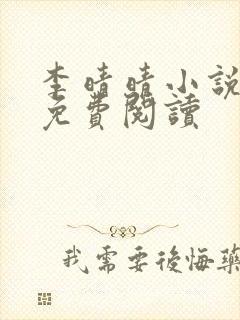 李晴晴小說
免費閱讀
我需要後悔藥